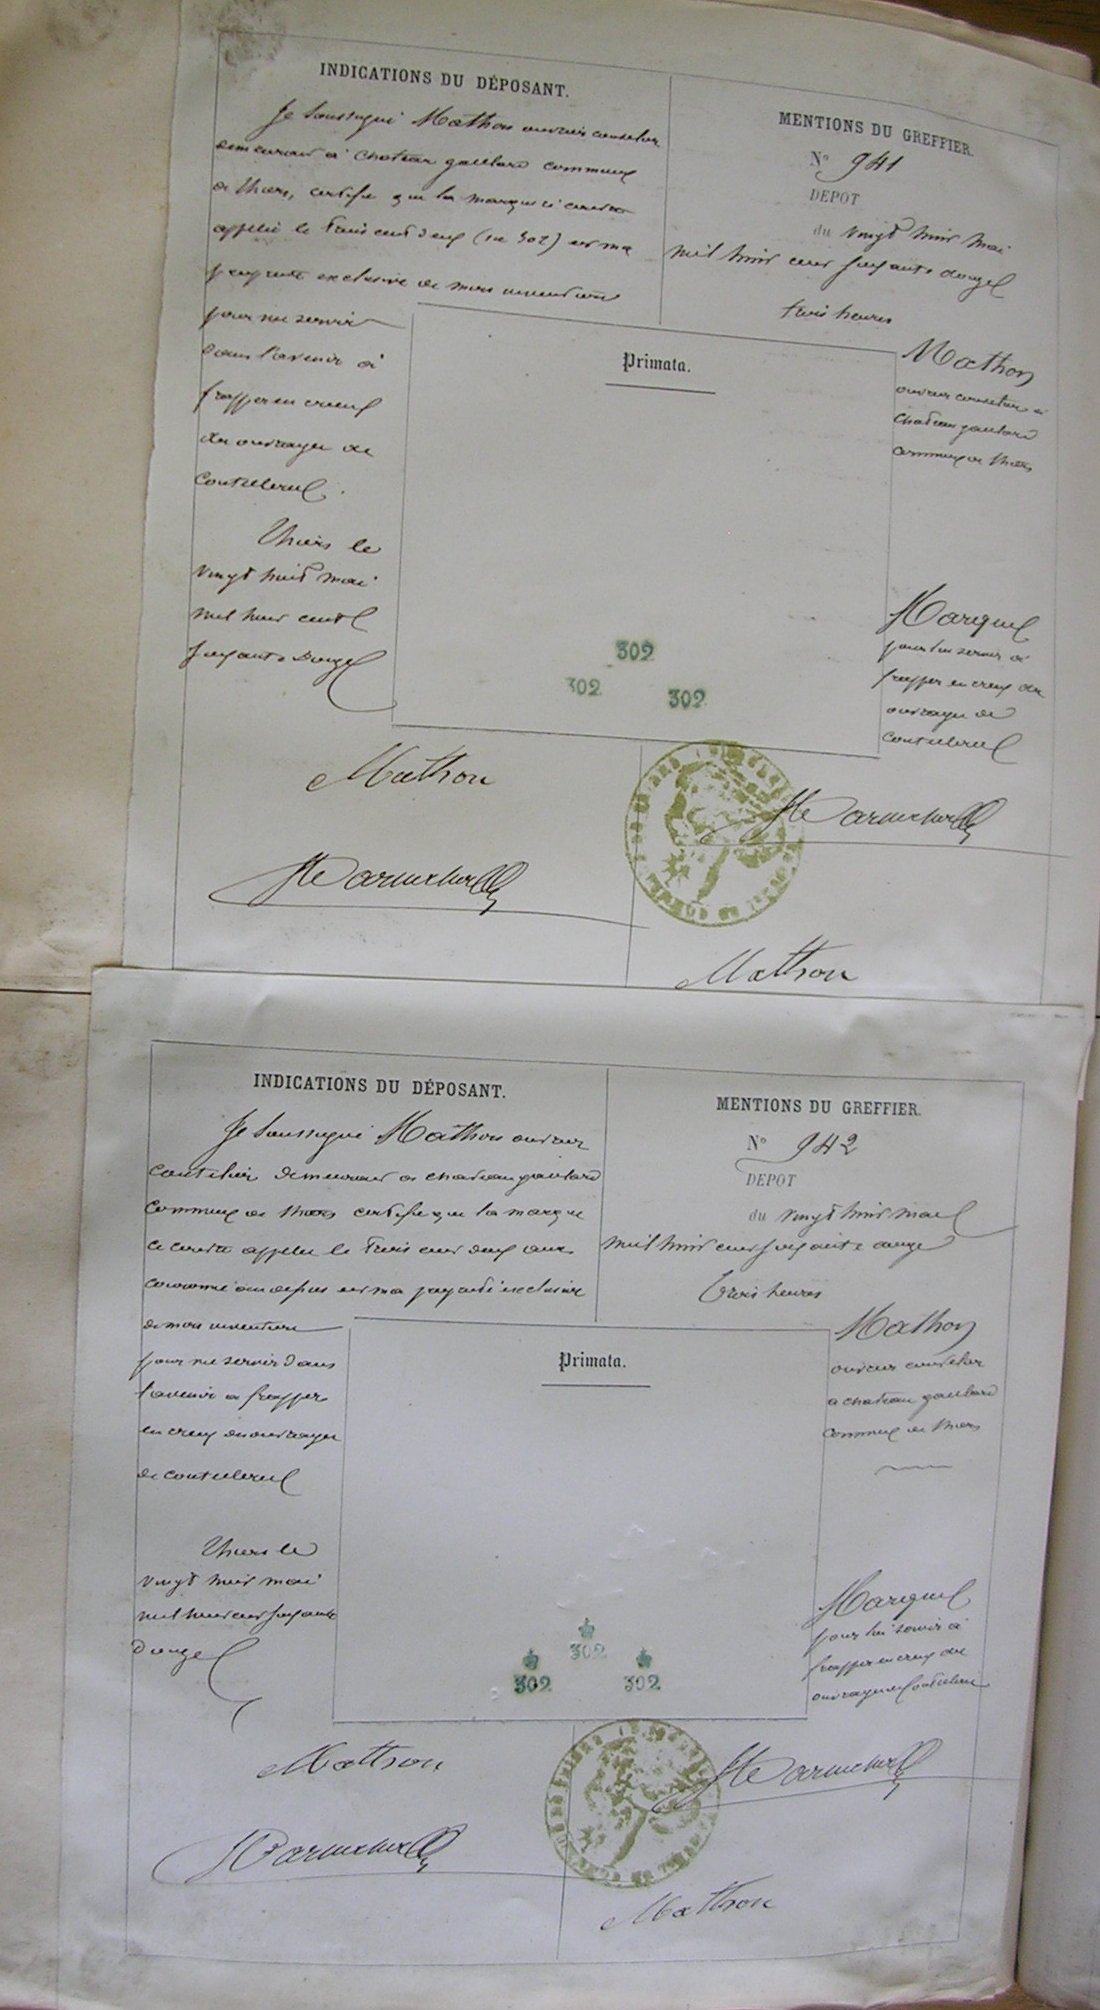 INDICATIONS DU DÉPOSANT.
Je soussigné Mathon ouvrier coutelier
demeurant à chateau gaillard commune
de thiers, certifie que la marque ci contre
appelée le trois cent deux (ou 302) est ma
propriété exclusive de mon invention
pour me servir
dans l'avenir à
frapper en creux
des ouvrages de
coutellerie.
Thiers le
vingt huit mai
mil huit cent
soixante douze
MENTIONS DU GREFFIER.
N° 941
DEPOT
du vingt huit mai
mil huit cent soixante douze
trois heures
Primata.
302
302 302
Mathon
ouvrier coutelier à
chateau gaillard
commune de thiers
Marque
pour lui servir à
frapper en creux des
ouvrages de
coutellerie
Mathon
Mathon
INDICATIONS DU DÉPOSANT.
Je soussigné Mathon ouvrier
coutelier demeurant à chateau gaillard
commune de thiers certifie que la marque
ci contre appelée le trois cent deux
couronné au dessus est ma propriété exclusive
de mon invention
pour me servir dans
l'avenir à frapper
en creux des ouvrages
de coutellerie
Thiers le
vingt huit mai
mil huit cent soixante
douze
MENTIONS DU GREFFIER.
N° 942
DEPOT
du vingt huit mai
mil huit cent soixante douze
trois heures
Primata.
302
302 302
Mathon
ouvrier coutelier
à chateau gaillard
commune de thiers
Marque
pour lui servir à
frapper en creux des
ouvrages de coutellerie
Mathon
Mathon